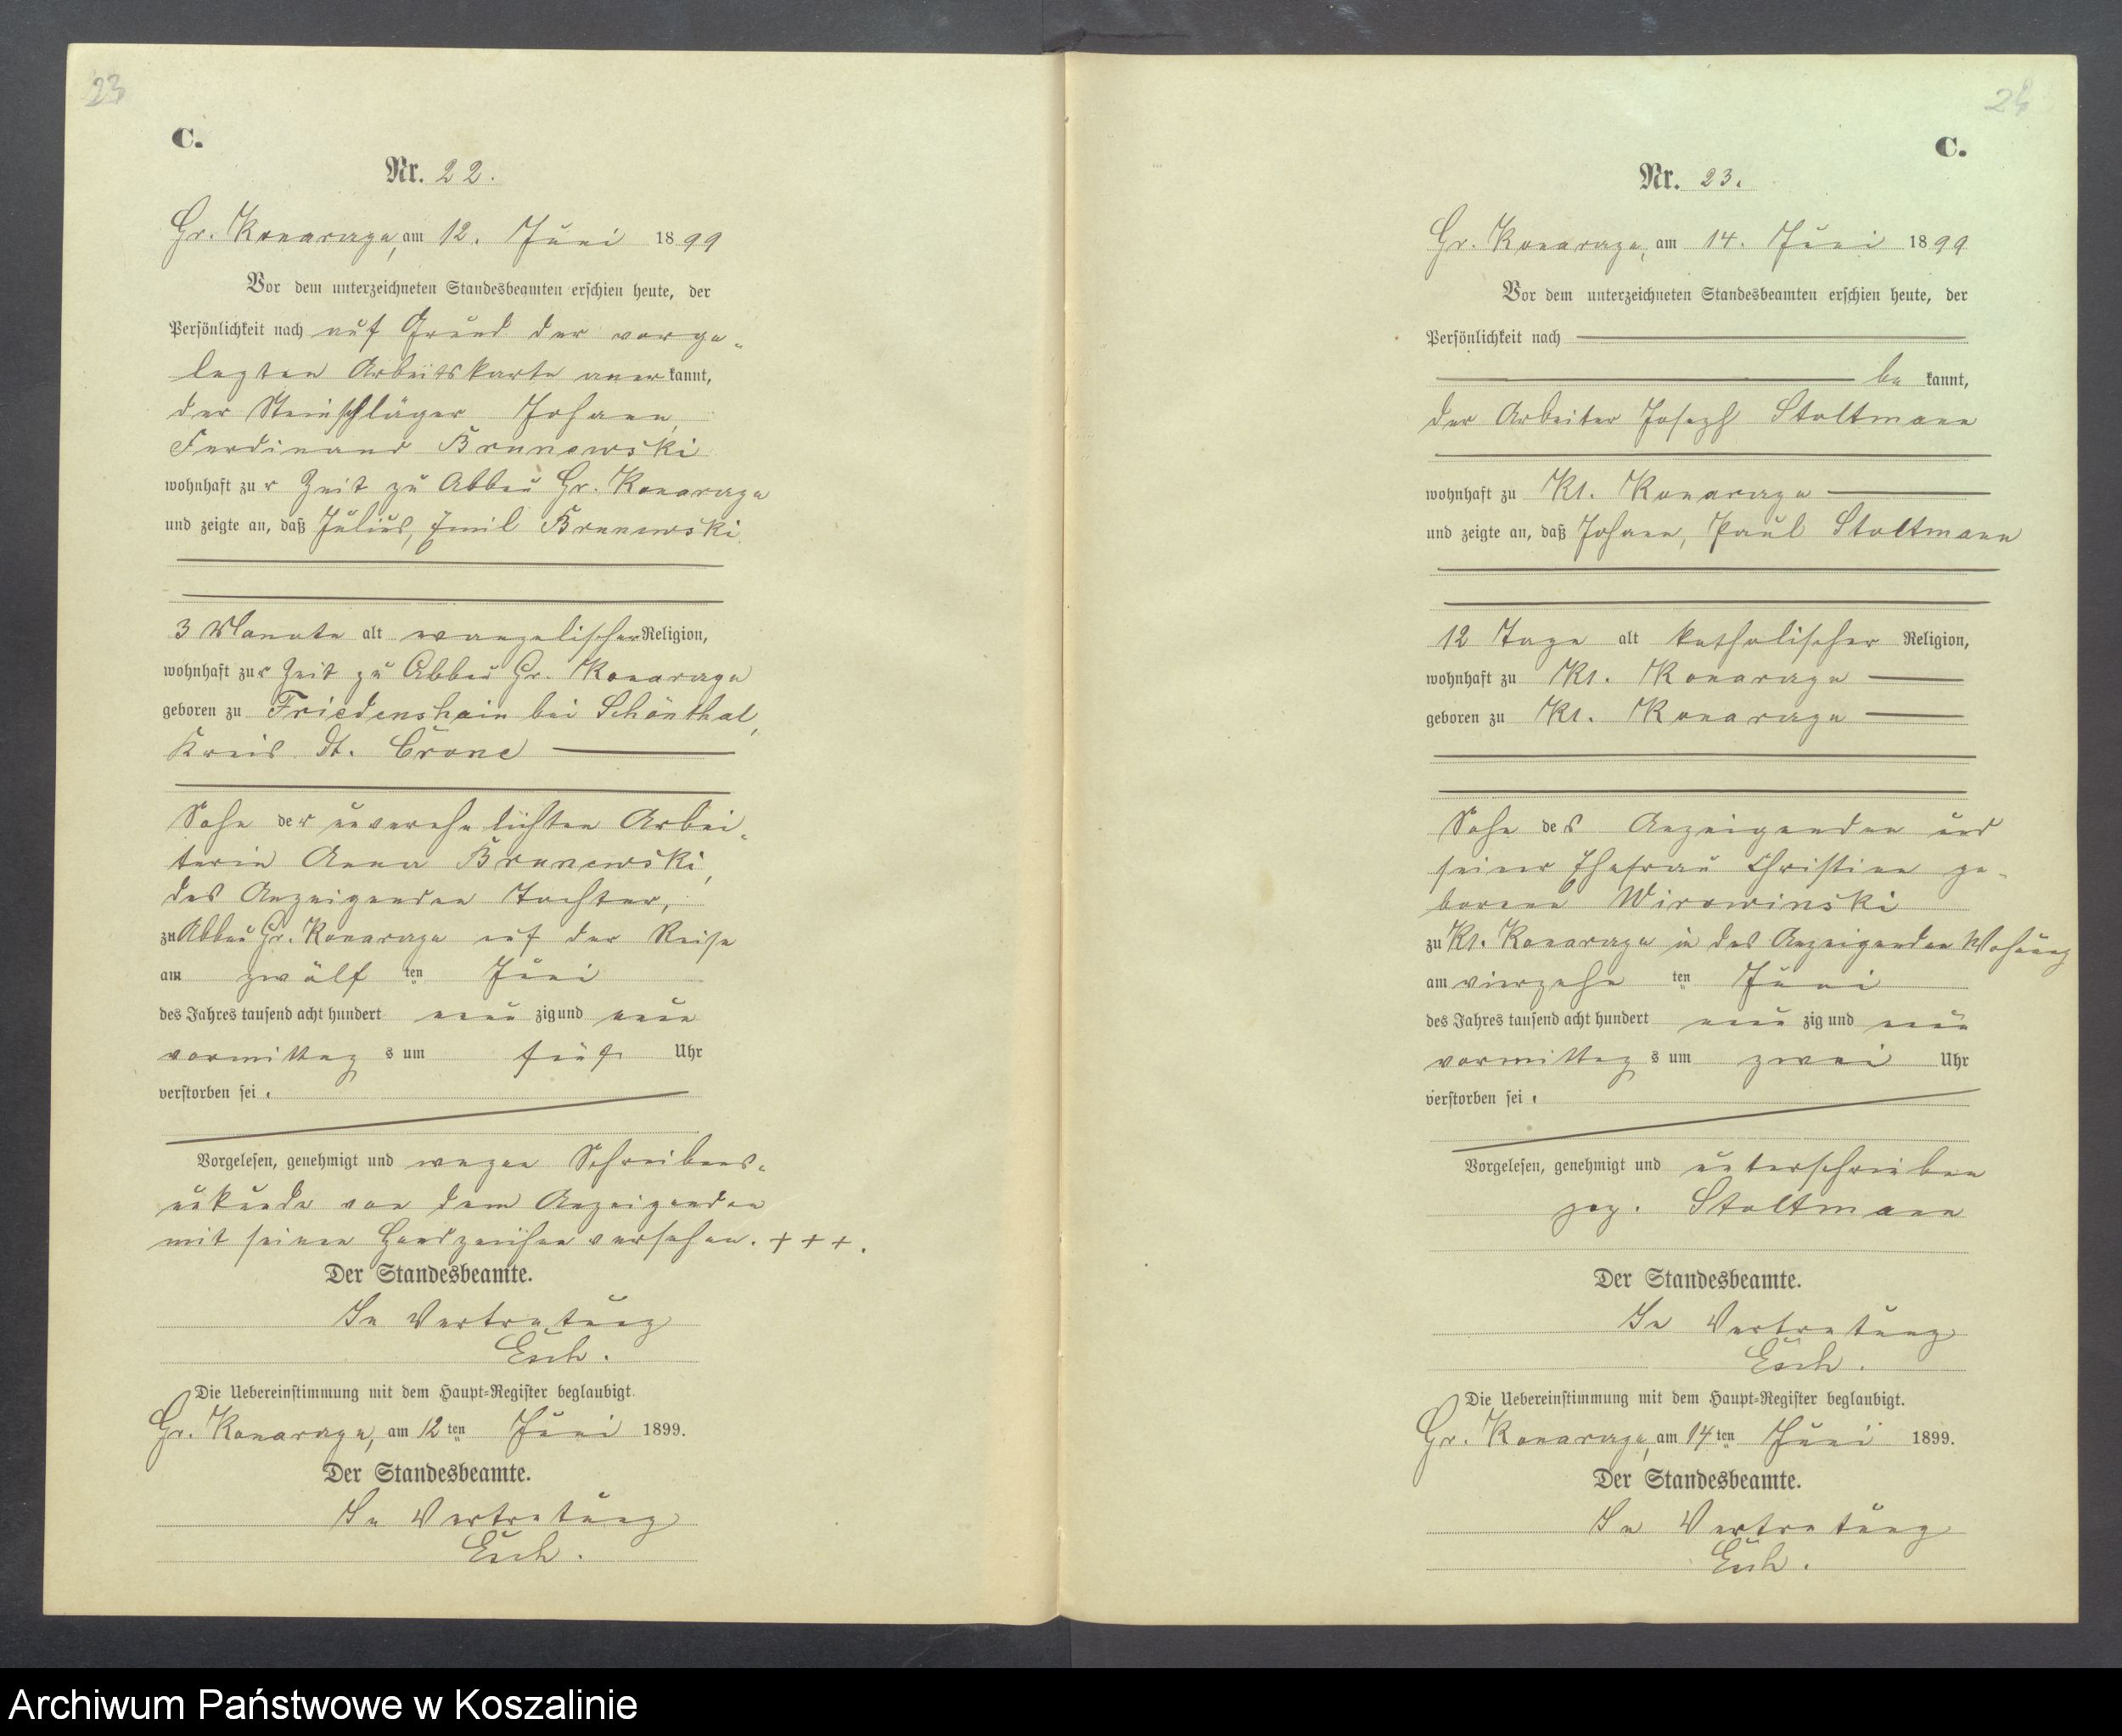 23
C.
Nr. 22.
Gr. Konarzyn, am 12. Juni 1899
Vor dem unterzeichneten Standesbeamten erschien heute, der
Persönlichkeit nach auf Grund der vorge-
legten Arbeitskarte anerkannt,
der Steinschläger Johann,
Ferdinand Brunowski
wohnhaft zur Zeit zu Abbau Gr. Konarzyn
und zeigte an, daß Julius, Emil Brunowski
3 Monate alt evangelischer Religion,
wohnhaft zur Zeit zu Abbau Gr. Konarzyn
geboren zu Friedenshain bei Schönthal,
Kreis Dt. Crone
Sohn der unverehelichten Arbei-
terin Anna Brunowski,
des Anzeigenden Tochter,
zu Abbau Gr. Konarzyn auf der Reise
am zwölften Juni
des Jahres tausend acht hundert neunzig und neun
vormittags um fünf Uhr
verstorben sei.
Vorgelesen, genehmigt und wegen Schreibens-
unkunde von dem Anzeigenden
mit seinen Handzeichen versehen. + + +.
Der Standesbeamte.
In Vertretung
Esch.
Die Uebereinstimmung mit dem Haupt-Register beglaubigt.
Gr. Konarzyn, am 12ten Juni 1899.
Der Standesbeamte.
In Vertretung
Esch.
24
C.
Nr. 23.
Gr. Konarzyn, am 14. Juni 1899
Vor dem unterzeichneten Standesbeamten erschien heute, der
Persönlichkeit nach
bekannt,
der Arbeiter Joseph Stoltmann
wohnhaft zu Kl. Konarzyn
und zeigte an, daß Johann, Paul Stoltmann
12 Tage alt katholischer Religion,
wohnhaft zu Kl. Konarzyn
geboren zu Kl. Konarzyn
Sohn des Anzeigenden und
seiner Ehefrau Christine ge-
borene Wirowinski
zu Kl. Konarzyn in des Anzeigenden Wohnung
am vierzehnten Juni
des Jahres tausend acht hundert neunzig und neun
vormittags um zwei Uhr
verstorben sei.
Vorgelesen, genehmigt und unterschrieben
gez. Stoltmann
Der Standesbeamte.
In Vertretung
Esch.
Die Uebereinstimmung mit dem Haupt-Register beglaubigt.
Gr. Konarzyn, am 14ten Juni 1899.
Der Standesbeamte.
In Vertretung
Esch.
Archiwum Państwowe w Koszalinie